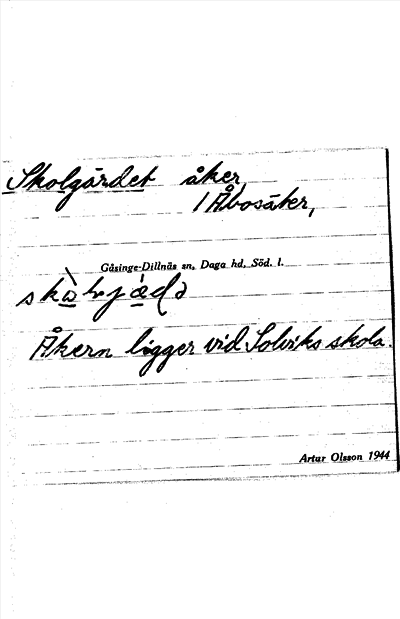 Skolgärdet åker,
1 Åbosäter,
Gåsinge-Dillnäs sn, Daga hd, Söd. l.
Åkern ligger vid Solviks skola.
Artur Olsson 1944